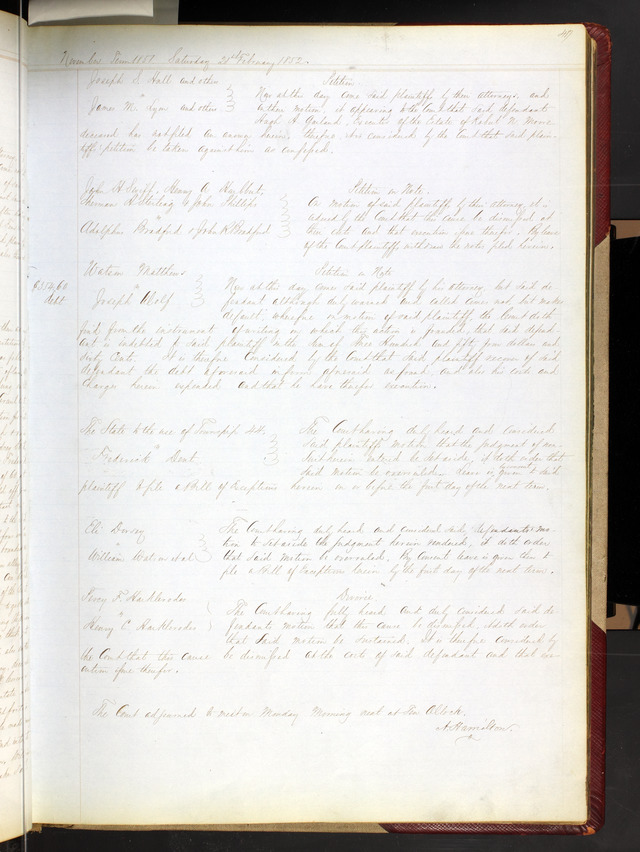 November Term 1851. Saturday 28th February 1852.
Joseph S. Hall and others Petition
James W. Lyon and others Now at this day come said plaintiffs by their attorneys and
on their motion, it appearing to the Court that said defendants
Hugh A. Garland, Executor of the Estate of
deceased has not filed an answer herein, therefore it is considered by the Court that said plain-
tiffs petition be taken against him as confessed.
John H. Swift, Henry A. Petition on Note.
& John Phillips On motion of said plaintiffs by their attorney, it is
Adolphus Bradford & John R Bradford by the Court that this cause be dismissed at
their cost and that execution issue therefor. By leave
of the Court plaintiffs withdraw the note filed herein.
Watson Matthews Petition on Note
$354,60 Now at this day comes said plaintiff by his attorney, but said de-
debt Joseph Wolf fendant although duly warned and called comes not, but makes
default; wherefore on motion of said plaintiff the Court doth
find from the instrument of writing on which this action is founded, that said defend-
ant is indebted to said plaintiff in the sum of three Hundred and fifty four dollars and
Sixty Cents. It is therefore Considered by the Court that said plaintiff recover of said
defendant the debt aforesaid in form aforesaid so found, and also his costs and
charges herein expended and that he have therefor execution.
The State to the use of Township 44. The Court having duly heard and considered
Frederick Dent said plaintiffs motion that the judgment of non-
suit herein entered be set aside, it doth order that
said motion be overruled. Leave is given to said
plaintiff to file a Bill of Exceptions herein on or before the first day of the next term.
Eli Dorsey The Court having duly heard and considered said defendants mo-
William Watson et al tion to set aside the judgment herein rendered, it doth order
that said motion be overruled. By Consent leave is given them to
file a Bill of Exceptions herein by the first day of the next term.
Divorce.
Henry C. The Court having fully heard and duly considered said de-
fendants motion that the cause be dismissed, it doth order
that said motion be sustained. It is therefore considered by
the Court that this cause be dismissed at the costs of said defendant and that exe-
cution issue therefor.
The Court adjourned to meet on Monday Morning next at Ten O'Clock.
A. Hamilton.